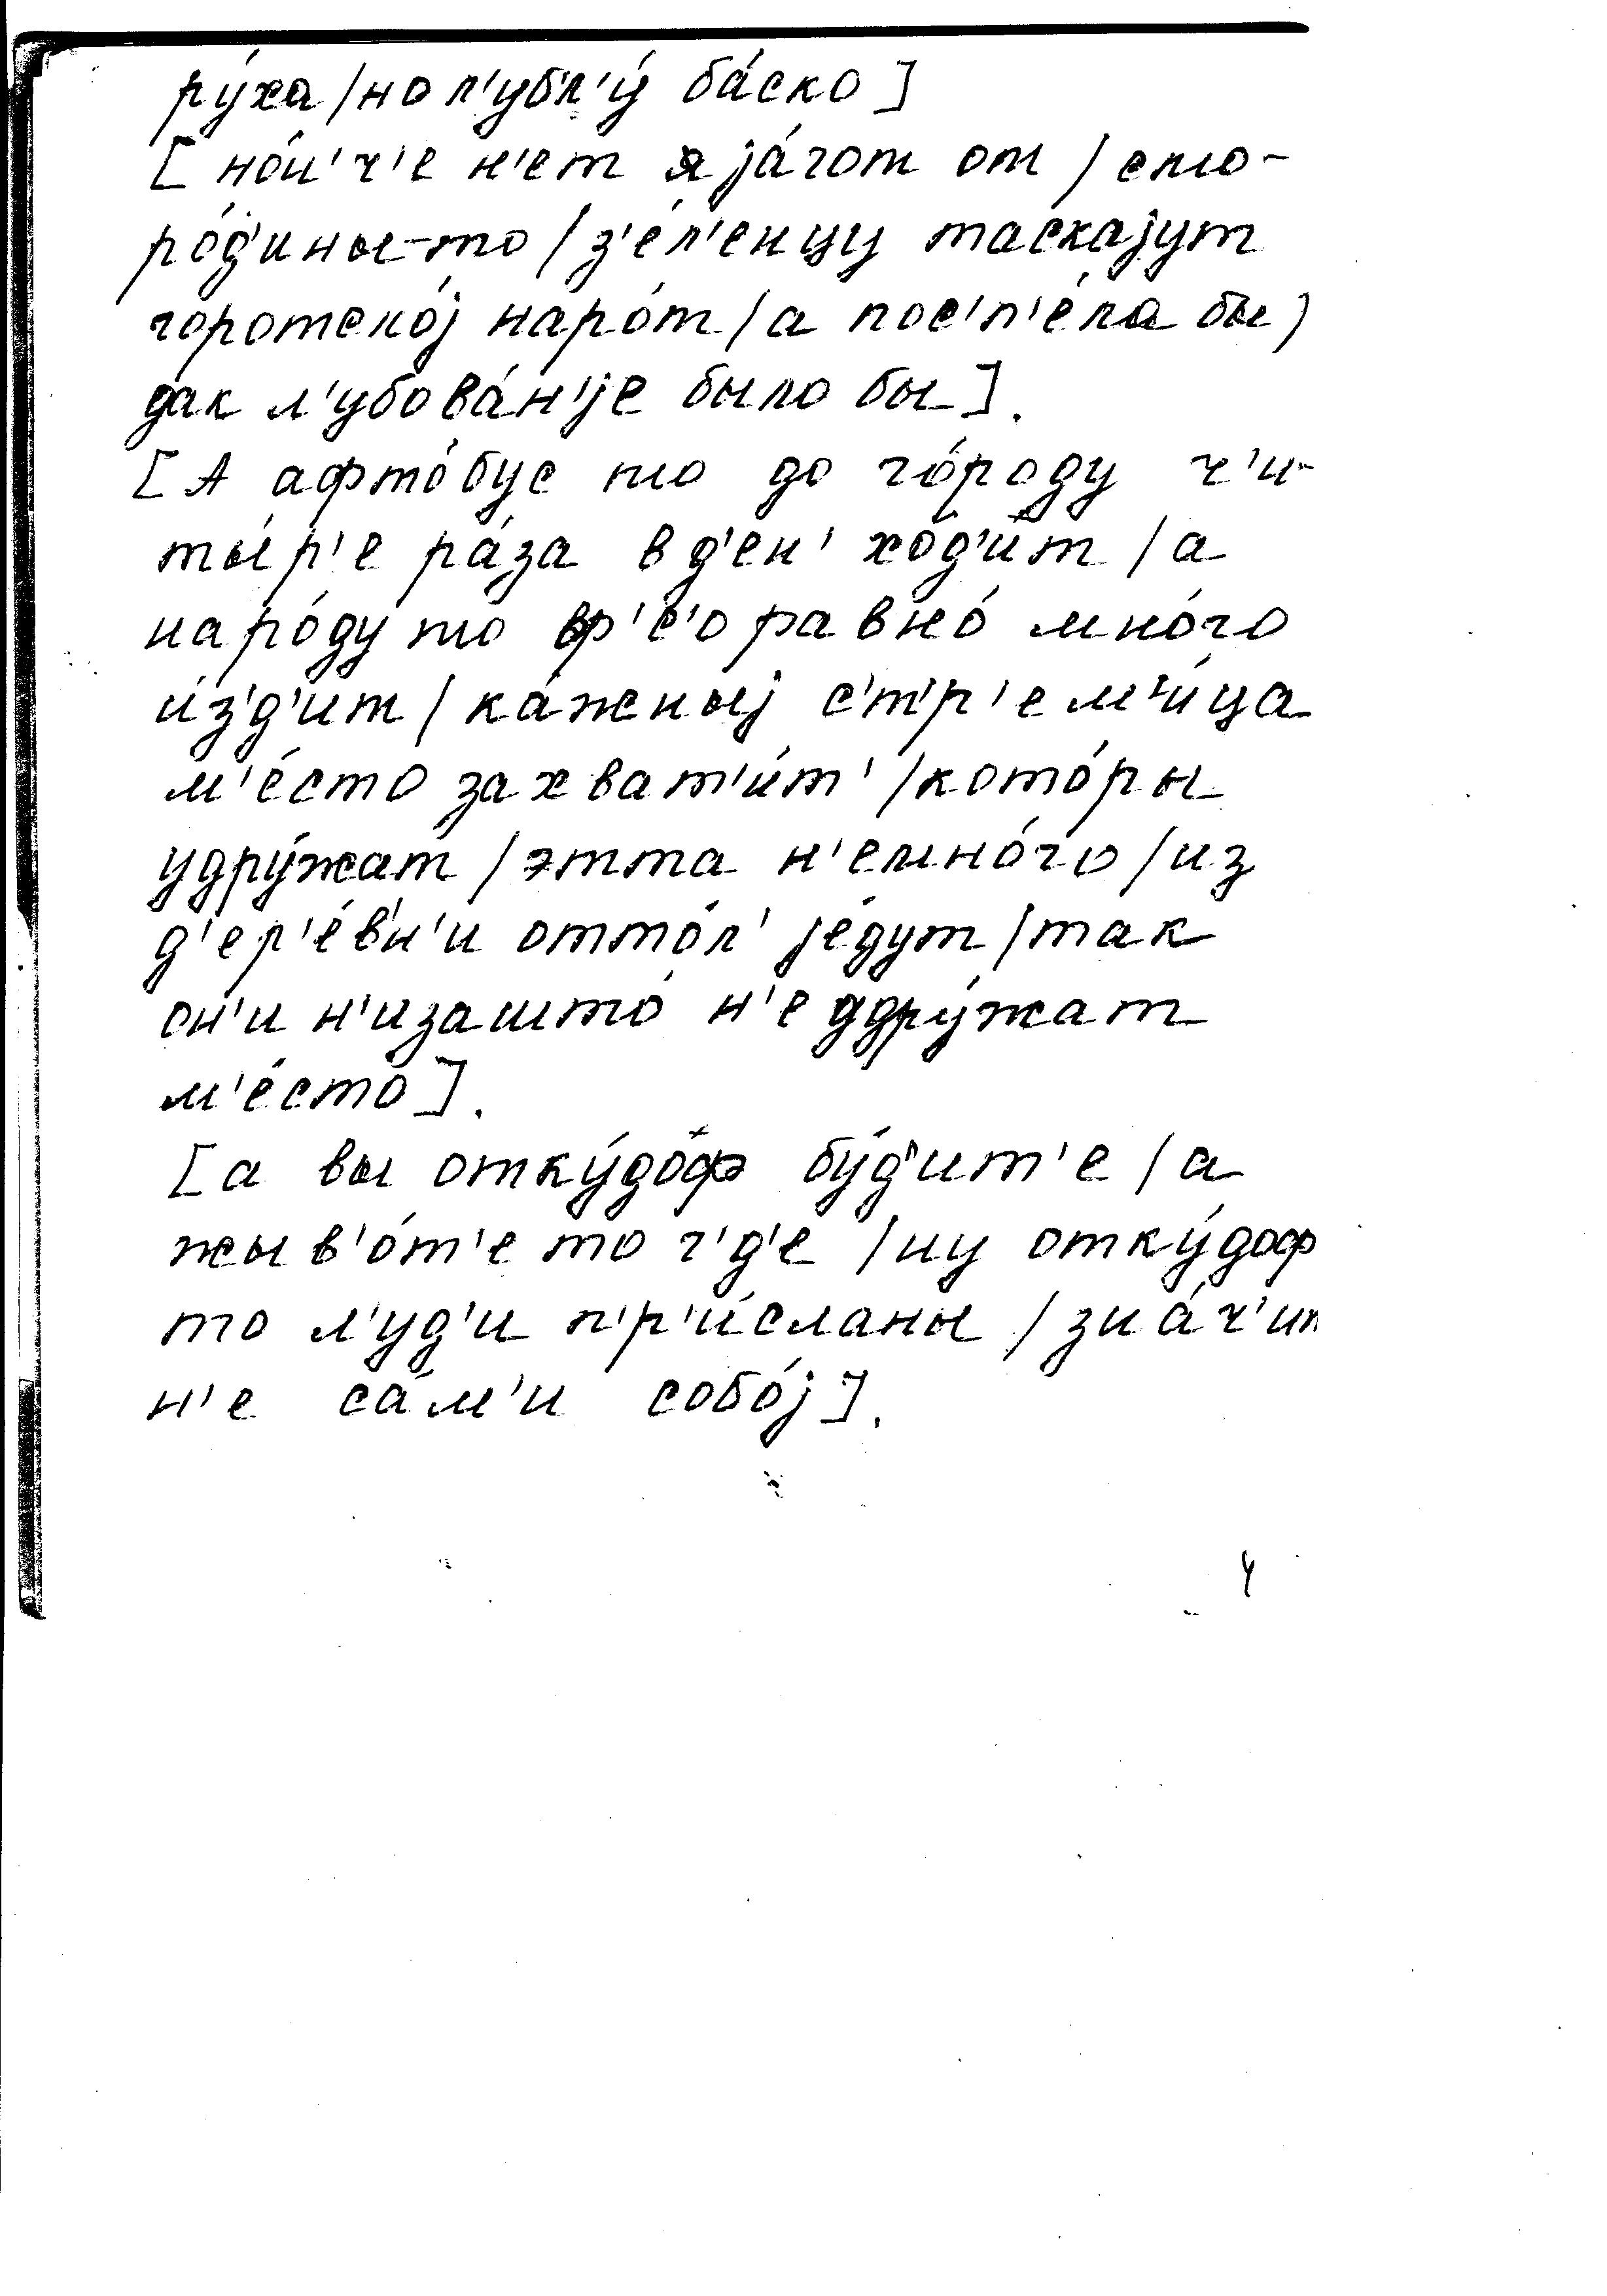 ру́ха / но л'убл'у́ ба́ско]
[но́н'ч'е н'ет jа́гот от / смо-
ро́д'ины-то / з'е́л'енцу таска́jут
горотско́j наро́т / а посп'е́ла бы /
дак л'убова́н'jе было бы].
[А афто́бус то до го́роду ч'и-
ты́р'е ра́за в д'ен' хо́д'ит / а
наро́ду то фс'о равно́ мно́го
и́з'д'ит / ка́жныj с'т'р'ем'и́ца
м'е́сто захват'и́т' / кото́ры
удру́жат /этта н'емно́го / из
д'ер'е́вн'и отто́л' jе́дут / так
он'и н'изашто́ н'е удру́жат
м'е́сто].
[а вы отку́доф бу́д'ит'е / а
жыв'о́т'е то г'д'е / ну отку́доф
то л'уд'и п'р'и́сланы / зна́ч'ит
н'е са́м'и собо́j].